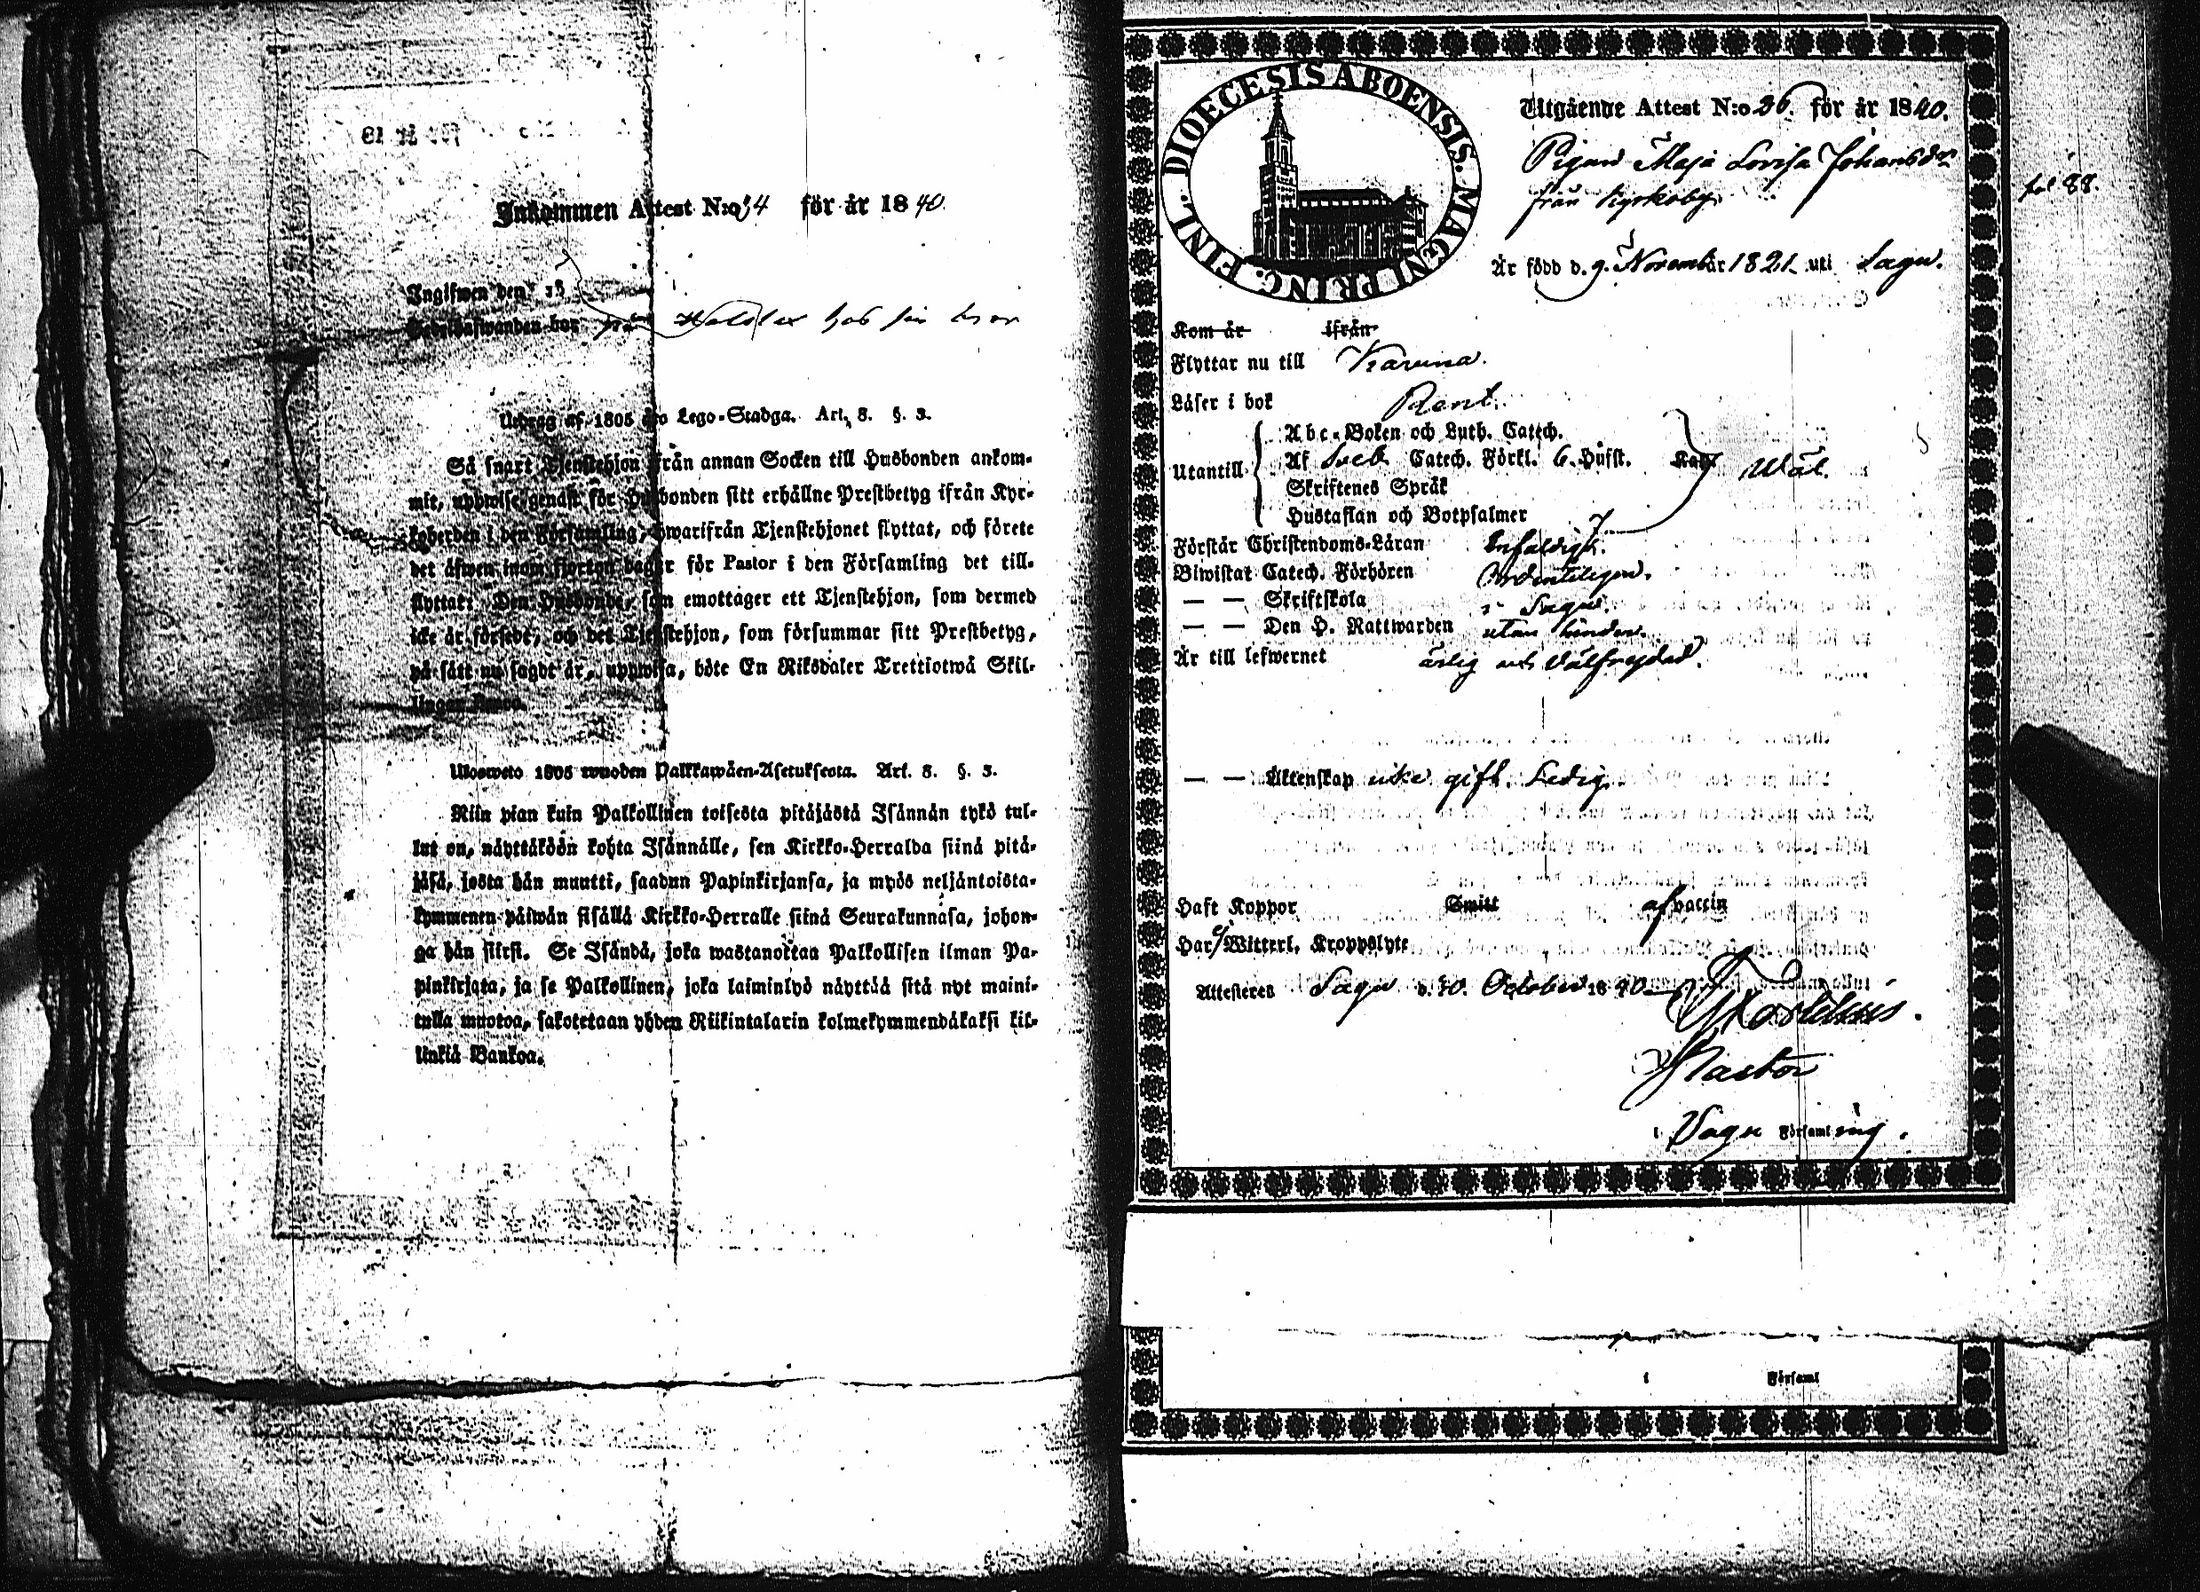 Inkommen Attest N:o 34 för år 1840.
Ingifwen den
hos sin
Utdrag af 1805 års Lego-Stadga. Art. 8. §. 3.
Så snart Tjenstehjon från annan Socken till Husbonden ankom-
mit, uppwise genast för Husbonden sitt erhållne Prestbetyg ifrån Kyr-
koherden i den Församling, hwarifrån Tjenstehjonet flyttat, och förete
det äfwen inom fjorton dagar för Pastor i den Församling det till-
flyttat: Den Husbonde, som emottager ett Tjenstehjon, som dermed
icke är försedt, och det Tjenstehjon, som försummar sitt Prestbetyg,
på sätt nu sagdt är, uppwisa, böte En Riksdaler Trettiotwå Skil-
lingar Banco.
Ulosweto 1805 wuoden Palkkawäen-Asetuksesta. Art. 8. §. 3.
Niin pian kuin Palkollinen toisesta pitäjästä Isännän tykö tul-
lut on, näyttäköön kohta Isännälle, sen Kirkko-Herralda siinä pitä-
jäsä, josta hän muutti, saadun Papinkirjansa, ja myös neljäntoista-
kymmenen päiwän sisällä Kirkko-Herralle siinä Seurakunnasa, johon-
ga hän siirsi. Se Isändä, joka wastanottaa Palkollisen ilman Pa-
pinkirjata, ja se Palkollinen, joka laiminlyö näyttää sitä nyt maini-
tulla muotoa, sakotetaan yhden Riikintalarin kolmekymmendäkaksi kil-
linkiä Bankoa.
DIOECESIS ABOENSIS. MAGNI PRINC. FINL.
Utgående Attest N:o 36. för år 1840.
Pigan Maja Lovisa Johansdr
från Kyrkoby.
fol 88.
Är född d. 9. Novembr år 1821 uti Sagu.
Kom år ifrån
Flyttar nu till Karuna.
Läser i bok Rent.
Abc-Boken och Luth. Catech.
Utantill Af Sveb Catech. Förkl. 6. Hufst. Kan Wäl.
Skriftenes Språk
Hustaflan och Botpsalmer
Förstår Christendoms-Läran Enfaldigt.
Biwistat Catech. Förhören Ordenteligen.
— — Skriftskola i Sagu.
— — Den H. Nattwarden utan hinder.
Är till lefwernet ärlig och välfrejdad.
— — Äktenskap icke gift. Ledig.
Haft Koppor Smitt af vaccin
Har ej Witterl. Kroppslyte
Attesteres Sagu d. 30. October 1840.
Pastor
i Sagu Församling.
i Församl